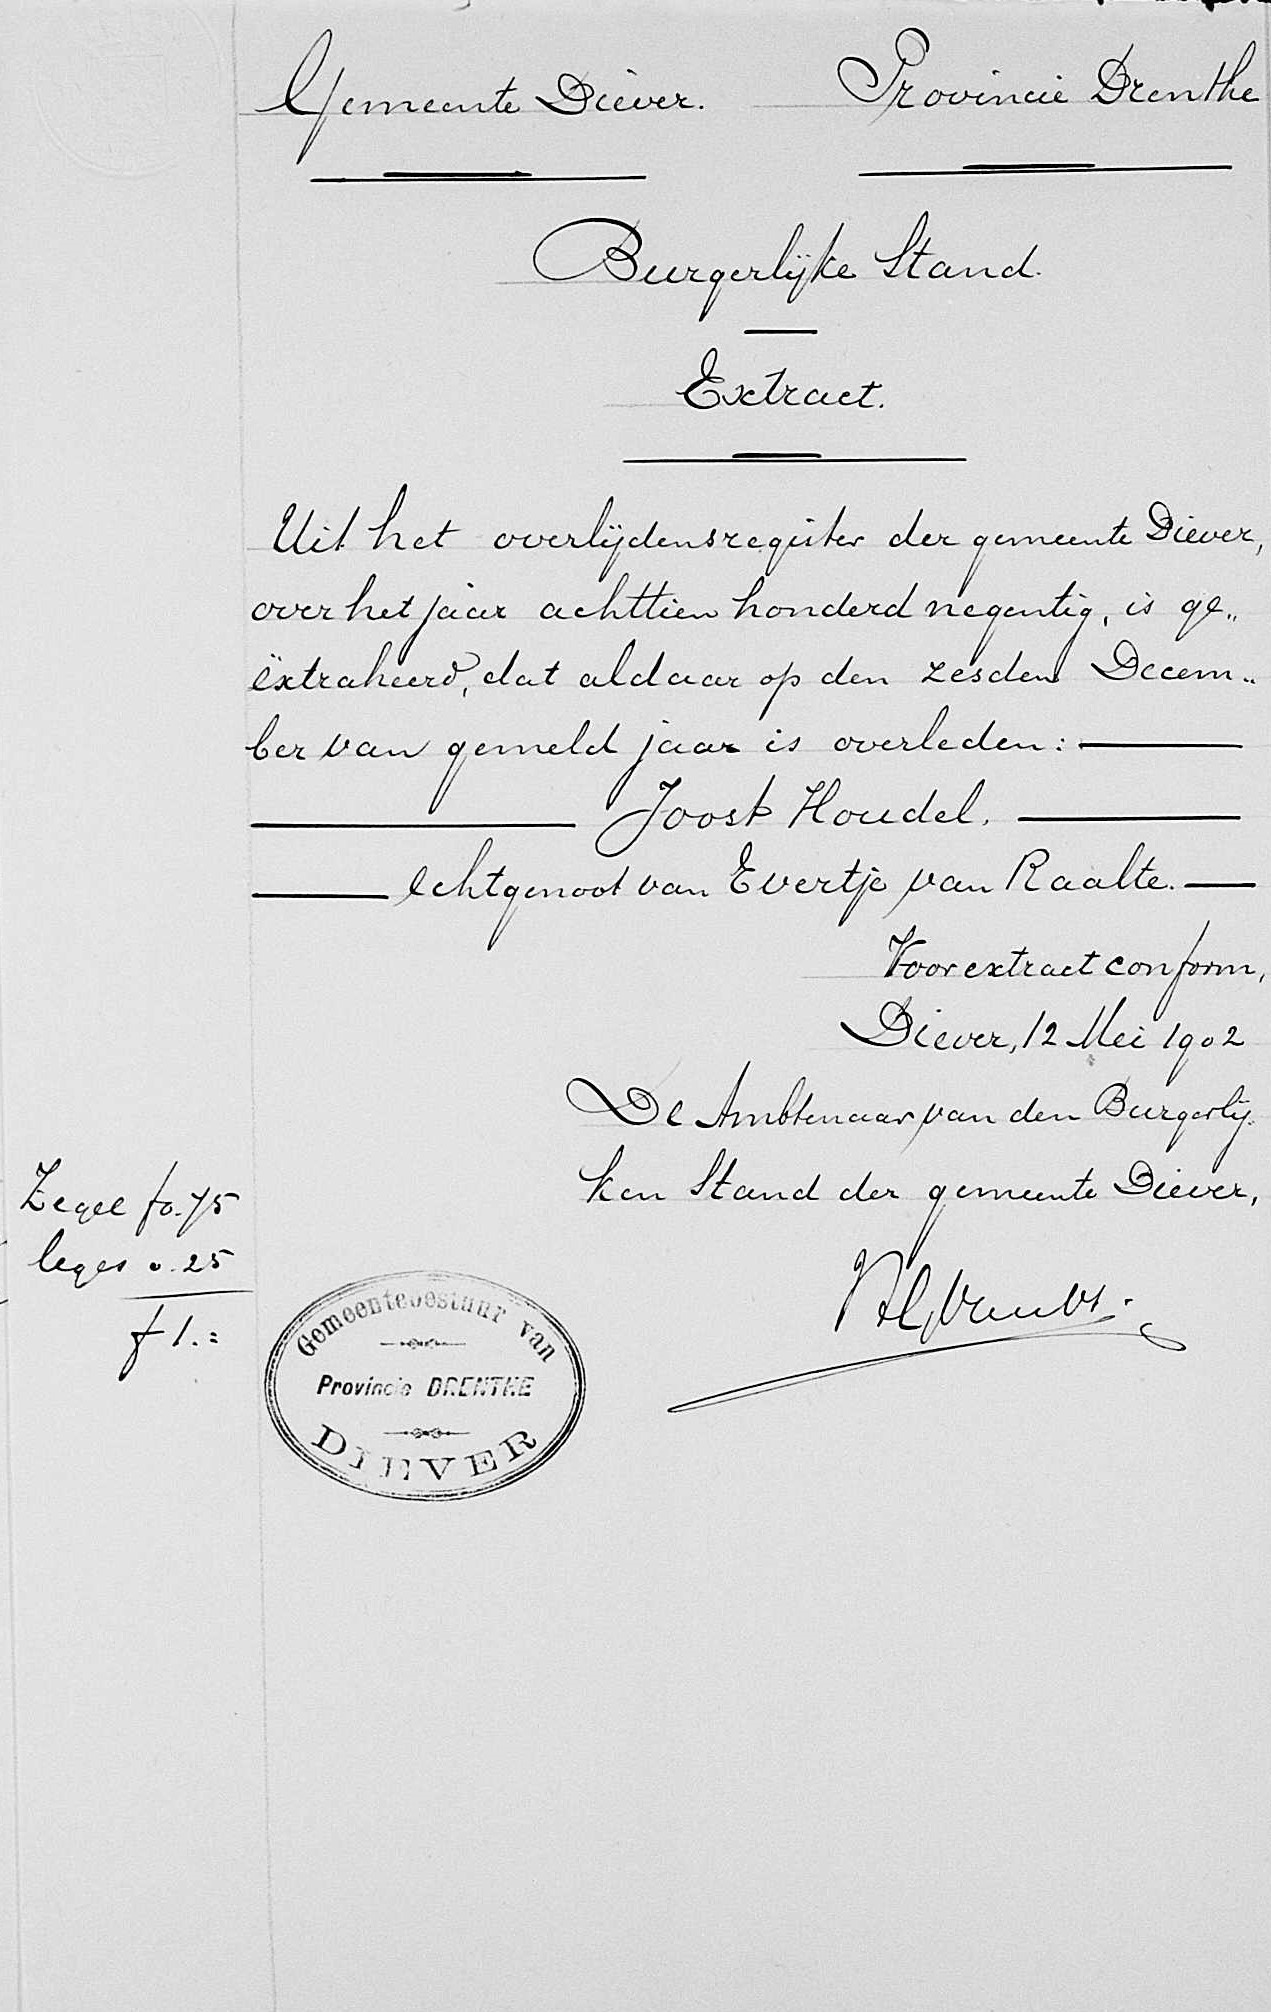 Gemeente Diever. Provincie Drenthe
Burgerlijke Stand.
Extract.
Uit het overlijdensregister der gemeente Diever,
over het jaar achttien honderd negentig, is ge„
ëxtraheerd, dat aldaar op den zesden Decem„
ber van gemeld jaar is overleden:
Joost Houdel.
echtgenoot van Evertje van Raalte.
Voor extract conform,
Diever, 12 Mei 1902
De Ambtenaar van den Burgerlij-
ken Stand der gemeente Diever,
Zegel f0.75
leges 0.25
f 1.=
Gemeentebestuur van
Provincie DRENTHE
DIEVER